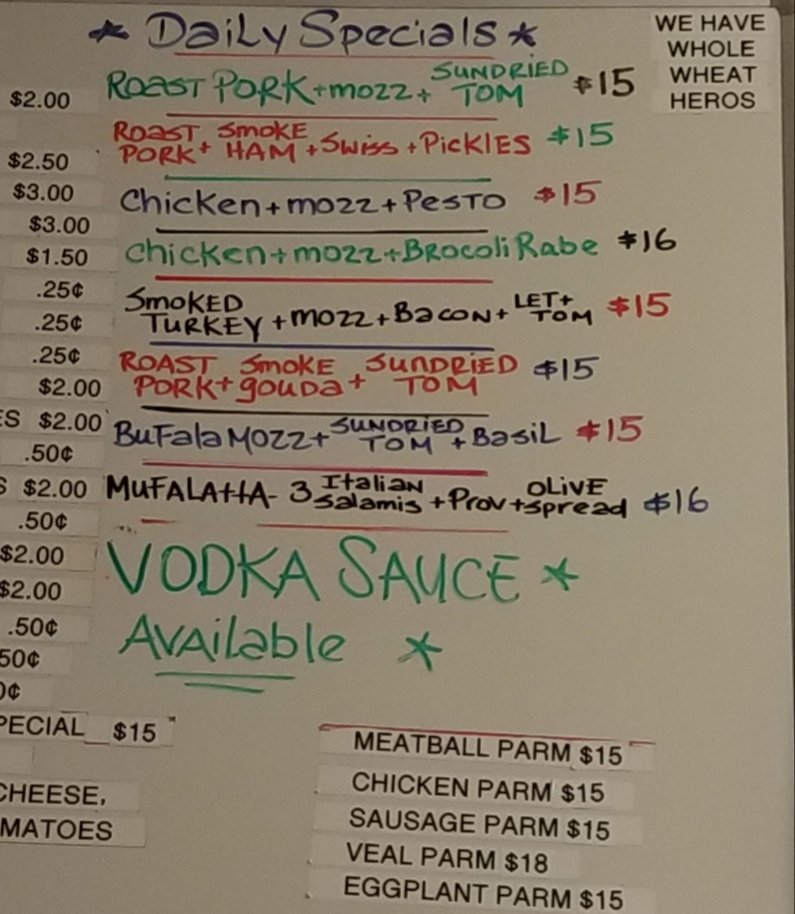 * Daily Specials *
WE HAVE
WHOLE
WHEAT
HEROS
$2.00
ROAST PORK + MOZZ + SUNDRIED TOM $15
ROAST PORK + SMOKE HAM + SWISS + PICKLES $15
$2.50
$3.00
Chicken + MOZZ + PESTO $15
$3.00
Chicken + MOZZ + BROCOLI RABE $16
$1.50
.25¢
SMOKED TURKEY + MOZZ + BACON + LET + TOM $15
.25¢
.25¢
ROAST PORK + SMOKE GOUDA + SUNDRIED TOM $15
$2.00
ES $2.00
BUFALA MOZZ + SUNDRIED TOM + BASIL $15
.50¢
S $2.00
MUFALATTA - 3 Italian Salamis + Prov + OLIVE spread $16
.50¢
$2.00
VODKA SAUCE *
$2.00
.50¢
AVAILABLE *
50¢
0¢
PECIAL $15
CHEESE,
MATOES
MEATBALL PARM $15
CHICKEN PARM $15
SAUSAGE PARM $15
VEAL PARM $18
EGGPLANT PARM $15